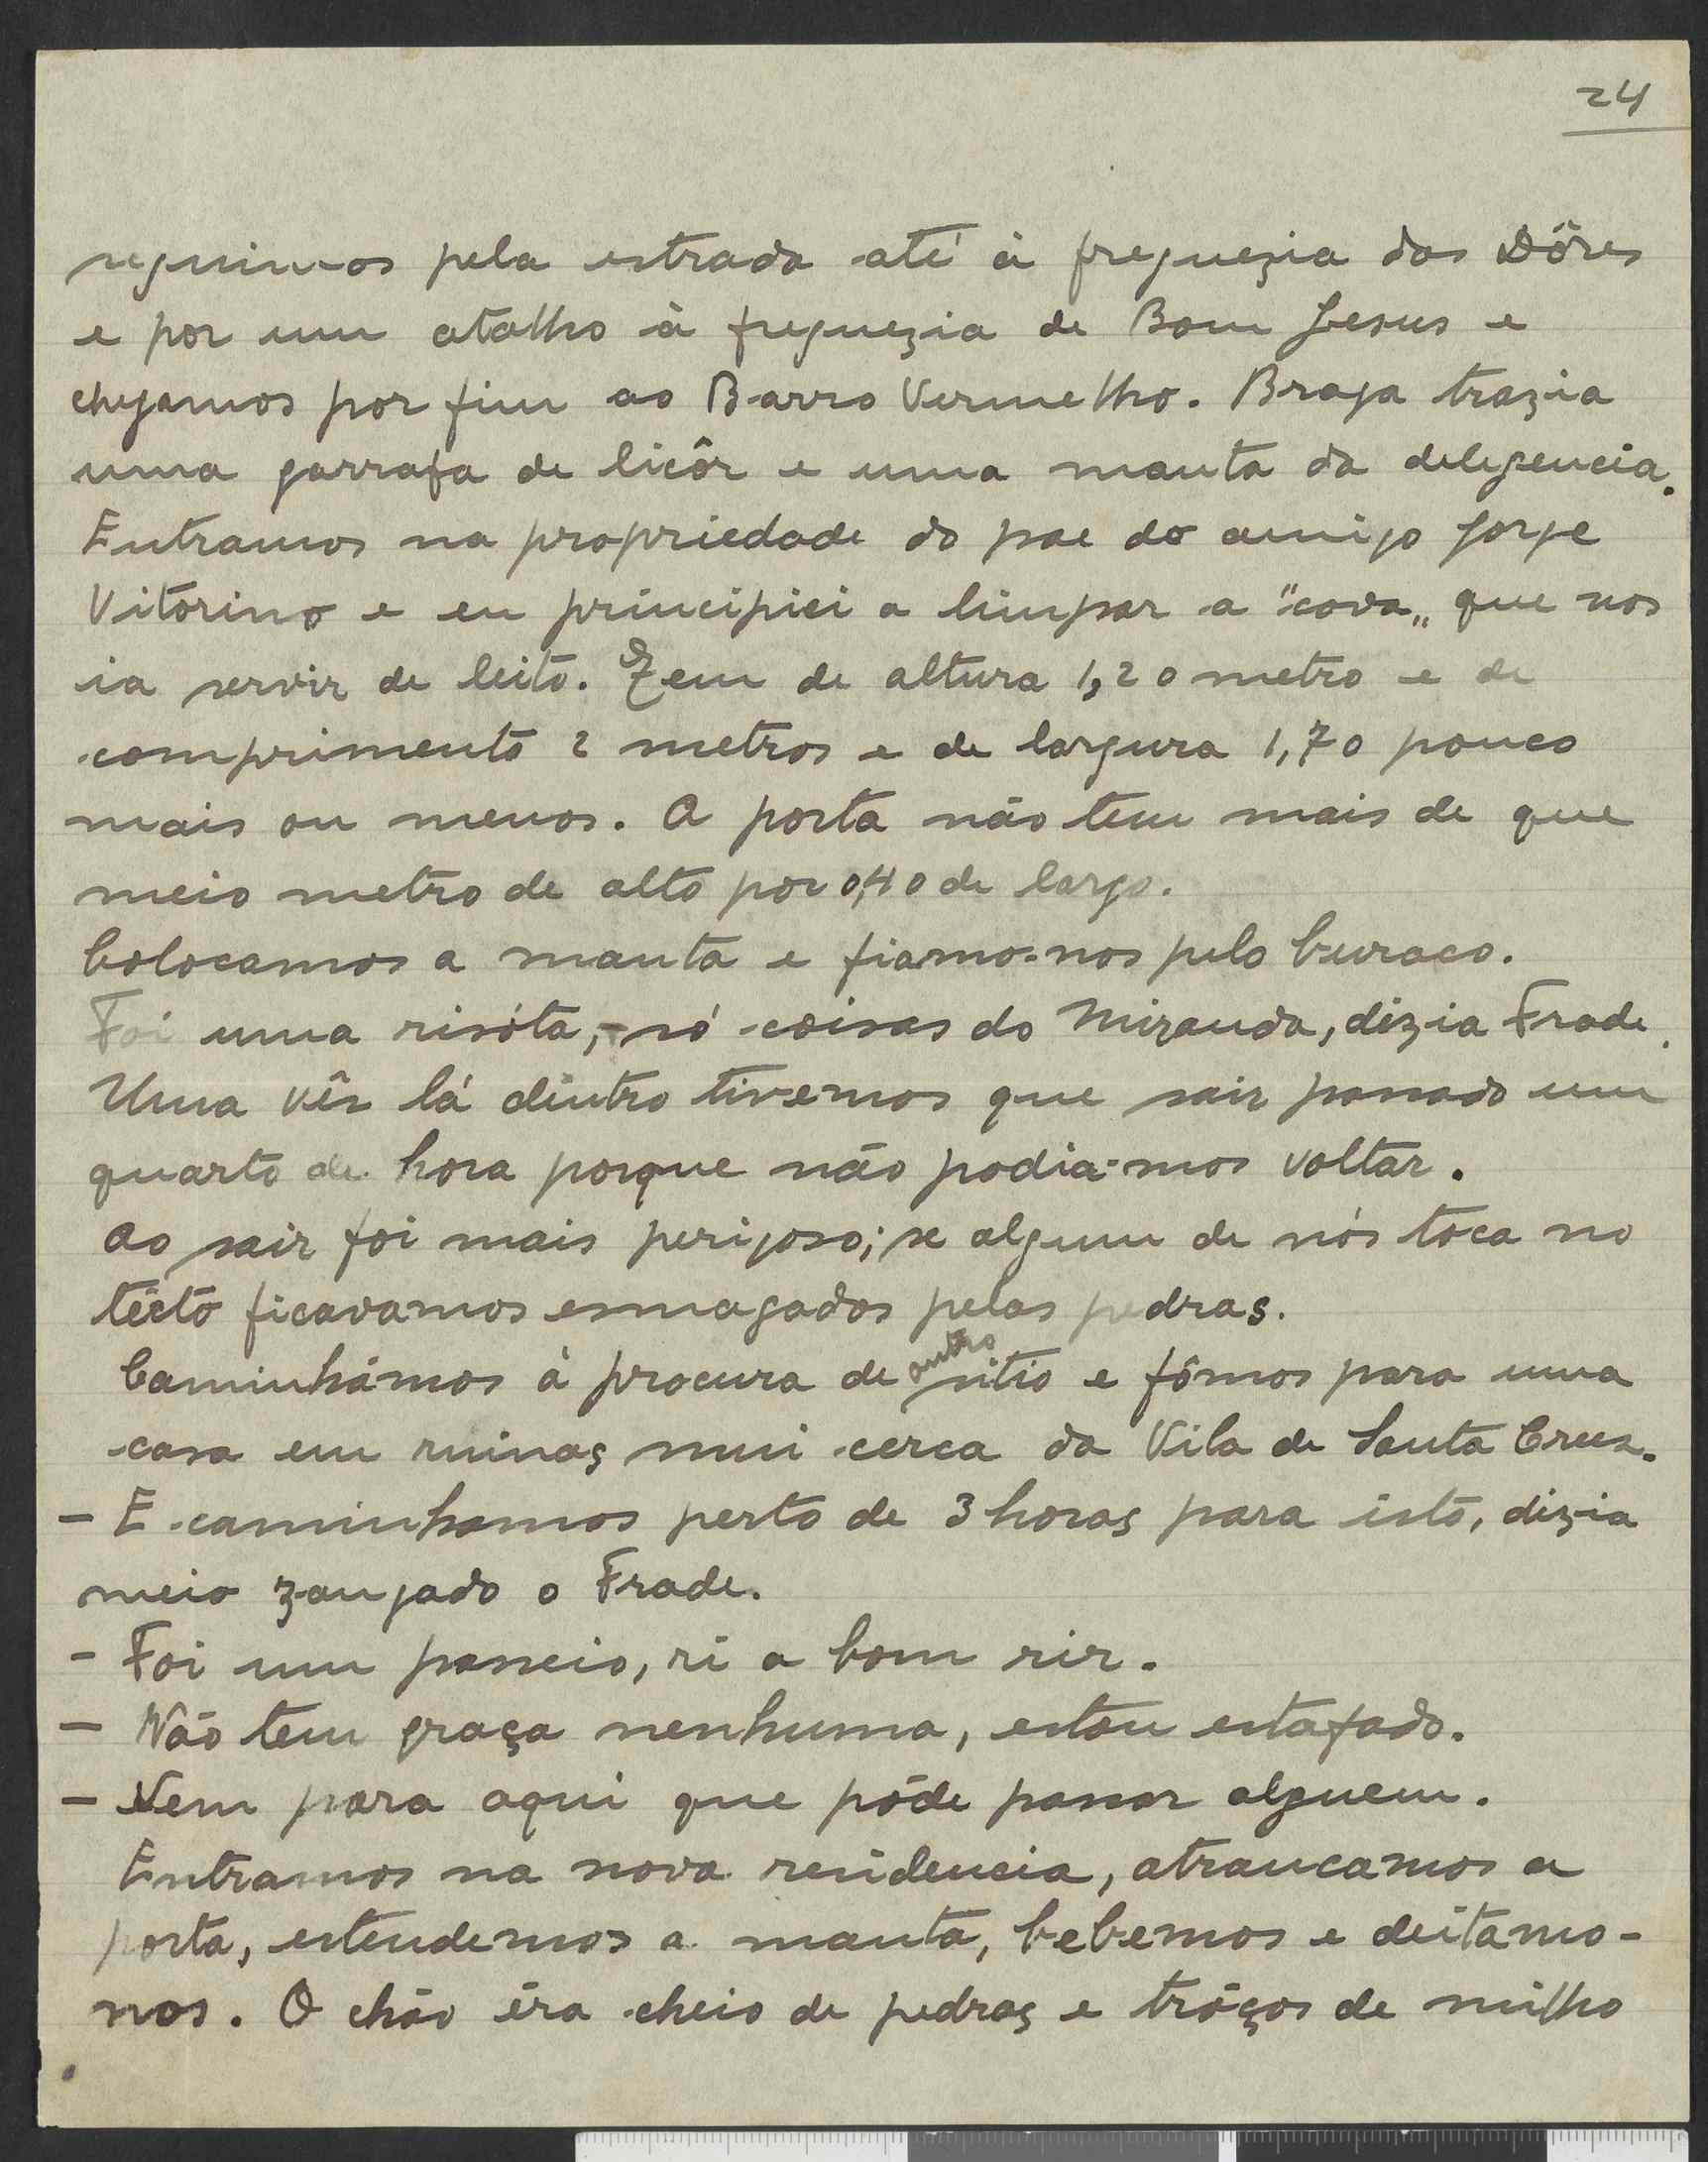 24
seguimos pela estrada até à freguezia das Dôres
e por um atalho à freguezia de Bom Jesus e
chegamos por fim ao Barro Vermelho. Braga trazia
uma garrafa de licôr e uma manta da deligencia.
Entramos na propriedade do pae do amigo Jorge
Vitorino e eu principiei a limpar a "cova„ que nos
ia servir de leito. Tem de altura 1,20 metro e de
comprimento 2 metros e de largura 1,70 pouco
mais ou menos. A porta não tem mais de que
meio metro de alto por 0,40 de largo.
Colocamos a manta e fiamo-nos pelo buraco.
Foi uma risóta, - só coisas do Miranda, dizia Frade.
Uma vês lá dentro tivemos que sair passado um
quarto de hora porque não podia-mos voltar.
Ao sair foi mais perigoso; se algum de nós toca no
técto ficavamos esmagados pelas pedras.
Caminhámos à procura de outro sitio e fômos para uma
casa em ruinas mui cerca da Vila de Santa Cruz.
- E caminhamos perto de 3 horas para isto, dizia
meio zangado o Frade.
- Foi um passeio, ri a bom rir.
- Não tem graça nenhuma, estou estafado.
- Vem para aqui que póde passar alguem.
Entramos na nova residencia, atrancamos a
porta, estendemos a manta, bebemos e deitamo-
nos. O chão éra cheio de pedras e tróços de milho